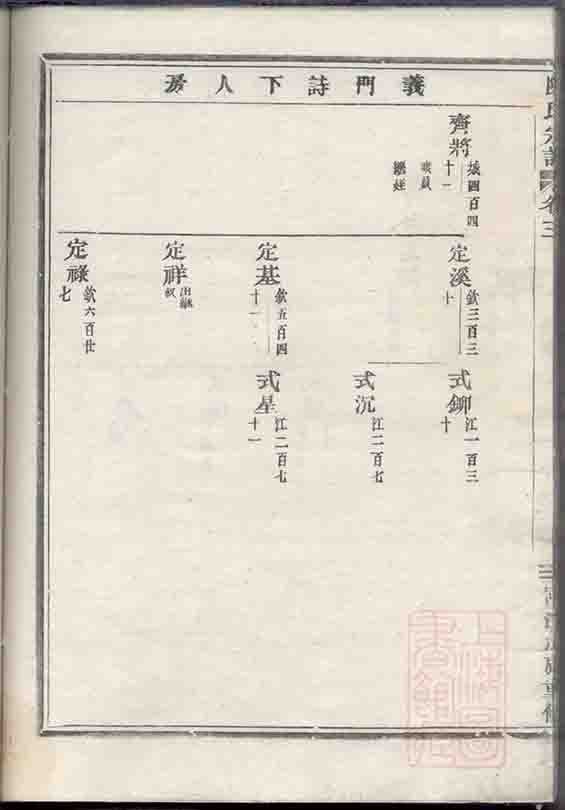 義門詩下人房
齊將
城四百四十一
定溪
欽三百三十
定基
欽五百四十一
定祥
出繼
定祿
欽六百廿七
式鉚
江一百三十
式沉
江二百七
式星
江二百七十一
氏宗譜
卷三
上海圖書館藏